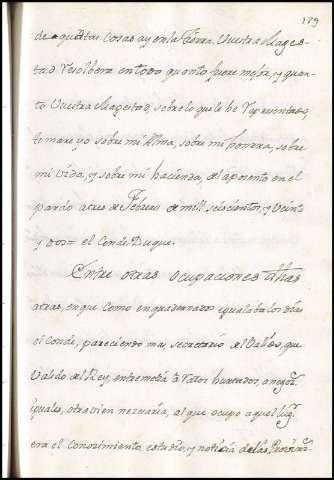 179
de aquestas Cosas ay en la Tierra. Vuestra Mages-
tad resolbera en todo quanto fuere mejor, y quan-
to Vuestra Magestad, sobre lo que le he representado,
tomare yo sobre mi Alma, sobre mi honrra, sobre
mi Vida, y sobre mi hacienda, del aposento en el
pardo a tres de Febrero de mill seiscientos, y Veinte
y dos= el Conde Duque.
Entre otras ocupaciones altas
otras, en que como enquadernados igualaba los dias
el Conde, pareciendo mas secretario del que
Valido del Rey, entremetia a ratos hurtados, a negos.
iguales, otra vien necesaria, al que ocupo aquel lug.
era el Conocimiento, estudio, y noticia de las